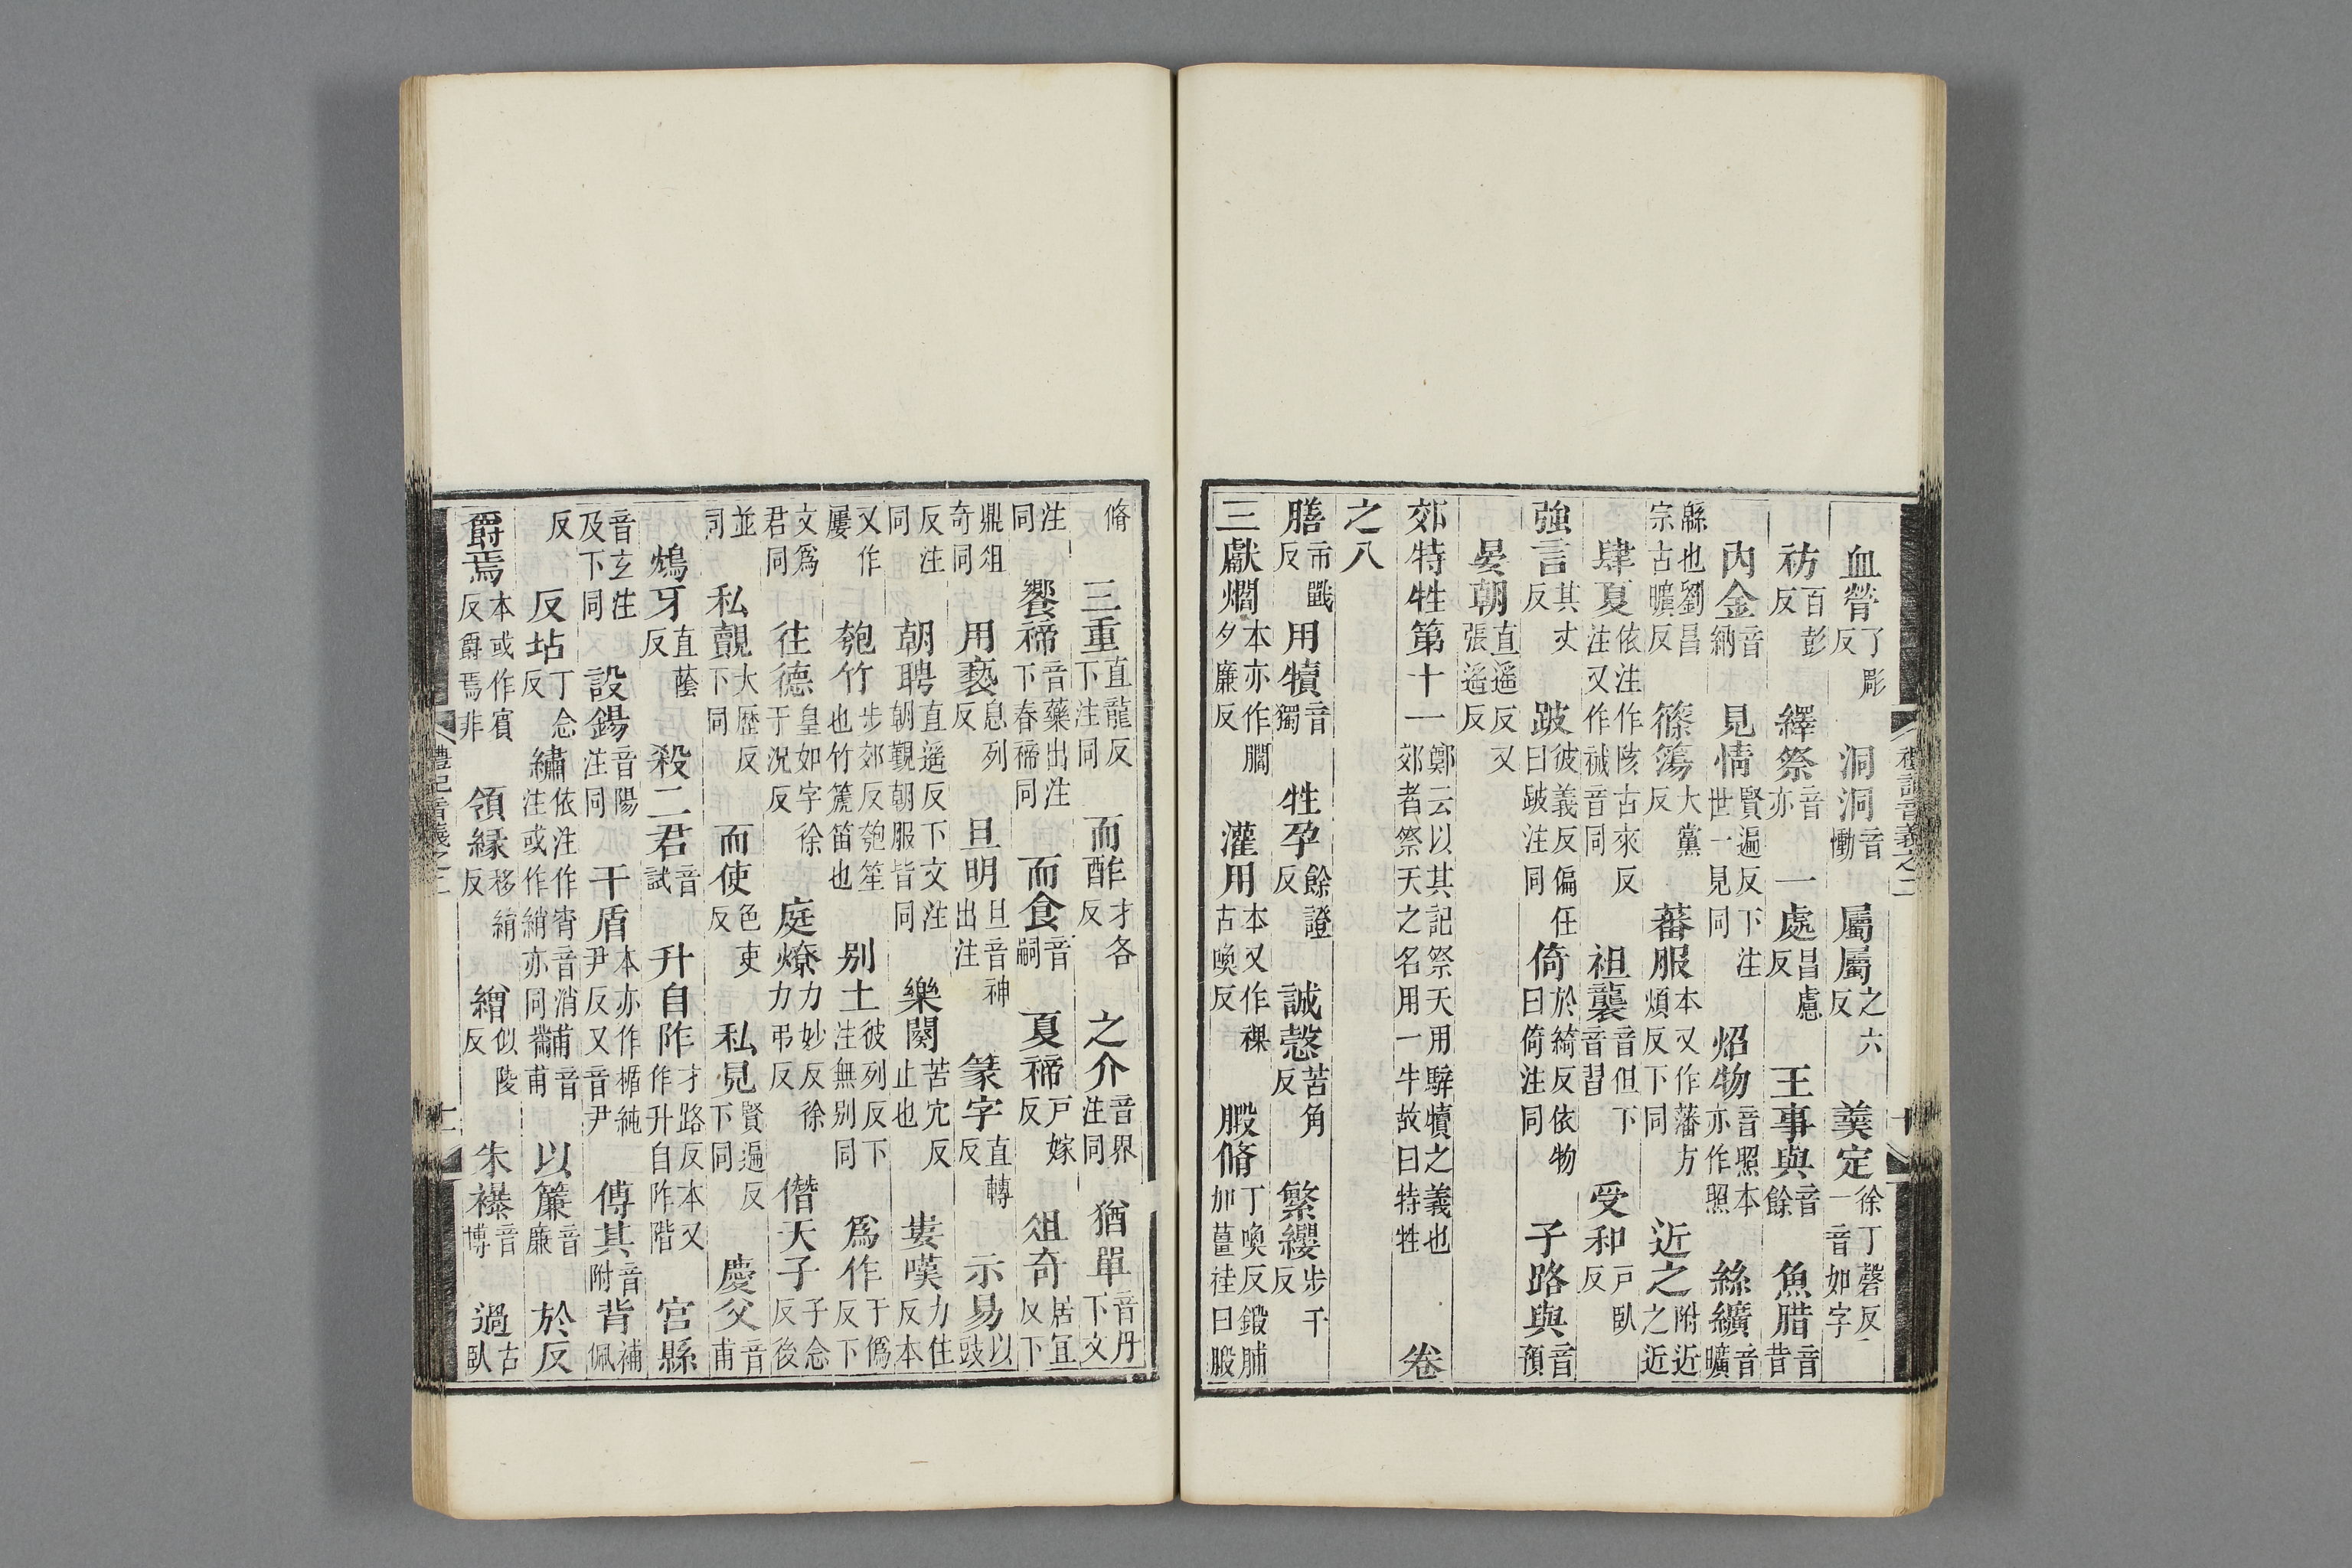 血膋了彫反 洞洞音慟 屬屬之六反 羹定徐丁磬反一音如字
祊百彭反 繹祭音亦 一處昌慮反 王事與音餘 魚腊音昔
內金音納 見情賢遍反下注世一見同 炤物音照本亦作照 絲纊音曠
緜也劉昌宗古曠反 篠簜大黨反 蕃服本又作藩方煩反下同 近之附近之近
肆夏依注作陔古來反注又作祴音同 袒襲音但下音習 受和戸臥反
強言其丈反 跛彼義反偏任曰跛注同 倚於綺反依物曰倚注同 子路與音預
晏朝直遥反又張遥反
郊特牲第十一鄭云以其記祭天用騂犢之義也郊者祭天之名用一牛故曰特牲 卷
之八
膳市戰反 用犢音獨 牲孕餘證反 誠慤苦角反 繁纓步干反
三獻爓本亦作膶夕廉反 灌用本又作祼古喚反 腶脩丁喚反鍛脯加薑桂曰腶
脩 三重直龍反下注同 而酢才各反 之介音界注同 猶單音丹下文
注同 饗禘音藥出注下春禘同 而食音嗣 夏禘戸嫁反 俎奇居宜反下
鼎俎奇同 用褻息列反 旦明旦音神出注 篆字直轉反 示易以豉
反注同 朝聘直遥反下文注朝覲朝服皆同 樂闋苦穴反止也 婁嘆力住反本
又作屢 匏竹步郊反匏笙也竹篪笛也 别土彼列反下注無别同 爲作于僞反下
文爲君同 往德皇如字徐于况反 庭燎力妙反徐力弔反 僭天子子念反後
並同 私覿大歴反下同 而使色吏反 私見賢遍反下同 慶父音甫
鴆牙直蔭反 殺二君音試 升自阼才路反本又作升自阼階 宮縣
音玄注及下同 設鍚音陽注同 干盾本亦作楯純尹反又音尹 傅其音附 背補佩
反 反坫丁念反 繡依注作宵音消注或作綃亦同 黼音甫 以簾音廉 於反
爵焉本或作賓反爵焉非 領緣移絹反 繒似陵反 朱襮音博 過古臥
禮記音義之二 十
禮記音義之二 十一